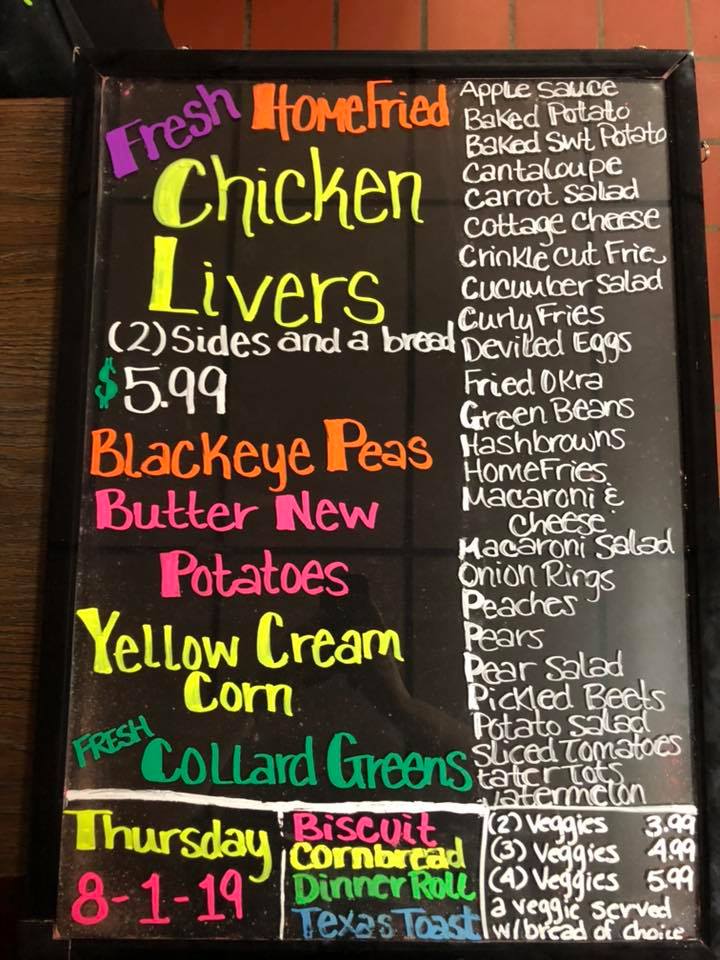 Fresh HomeFried
Chicken
Livers
(2) Sides and a bread
$5.99
Blackeye Peas
Butter New
Potatoes
Yellow Cream
Corn
FRESH Collard Greens
Apple Sauce
Baked Potato
Baked Swt Potato
Cantaloupe
Carrot Salad
Cottage Cheese
Crinkle Cut Frie
Cucumber Salad
Curly Fries
Deviled Eggs
Fried Okra
Green Beans
Hashbrowns
HomeFries
Macaroni &
Cheese
Macaroni Salad
Onion Rings
Peaches
Pears
Pear Salad
Pickled Beets
Potato Salad
Sliced Tomatoes
tater Tots
Watermelon
Thursday
8-1-19
Biscuit
Cornbread
Dinner Roll
Texas Toast
(2) Veggies 3.99
(3) Veggies 4.99
(4) Veggies 5.99
a veggie served
w/ bread of choice